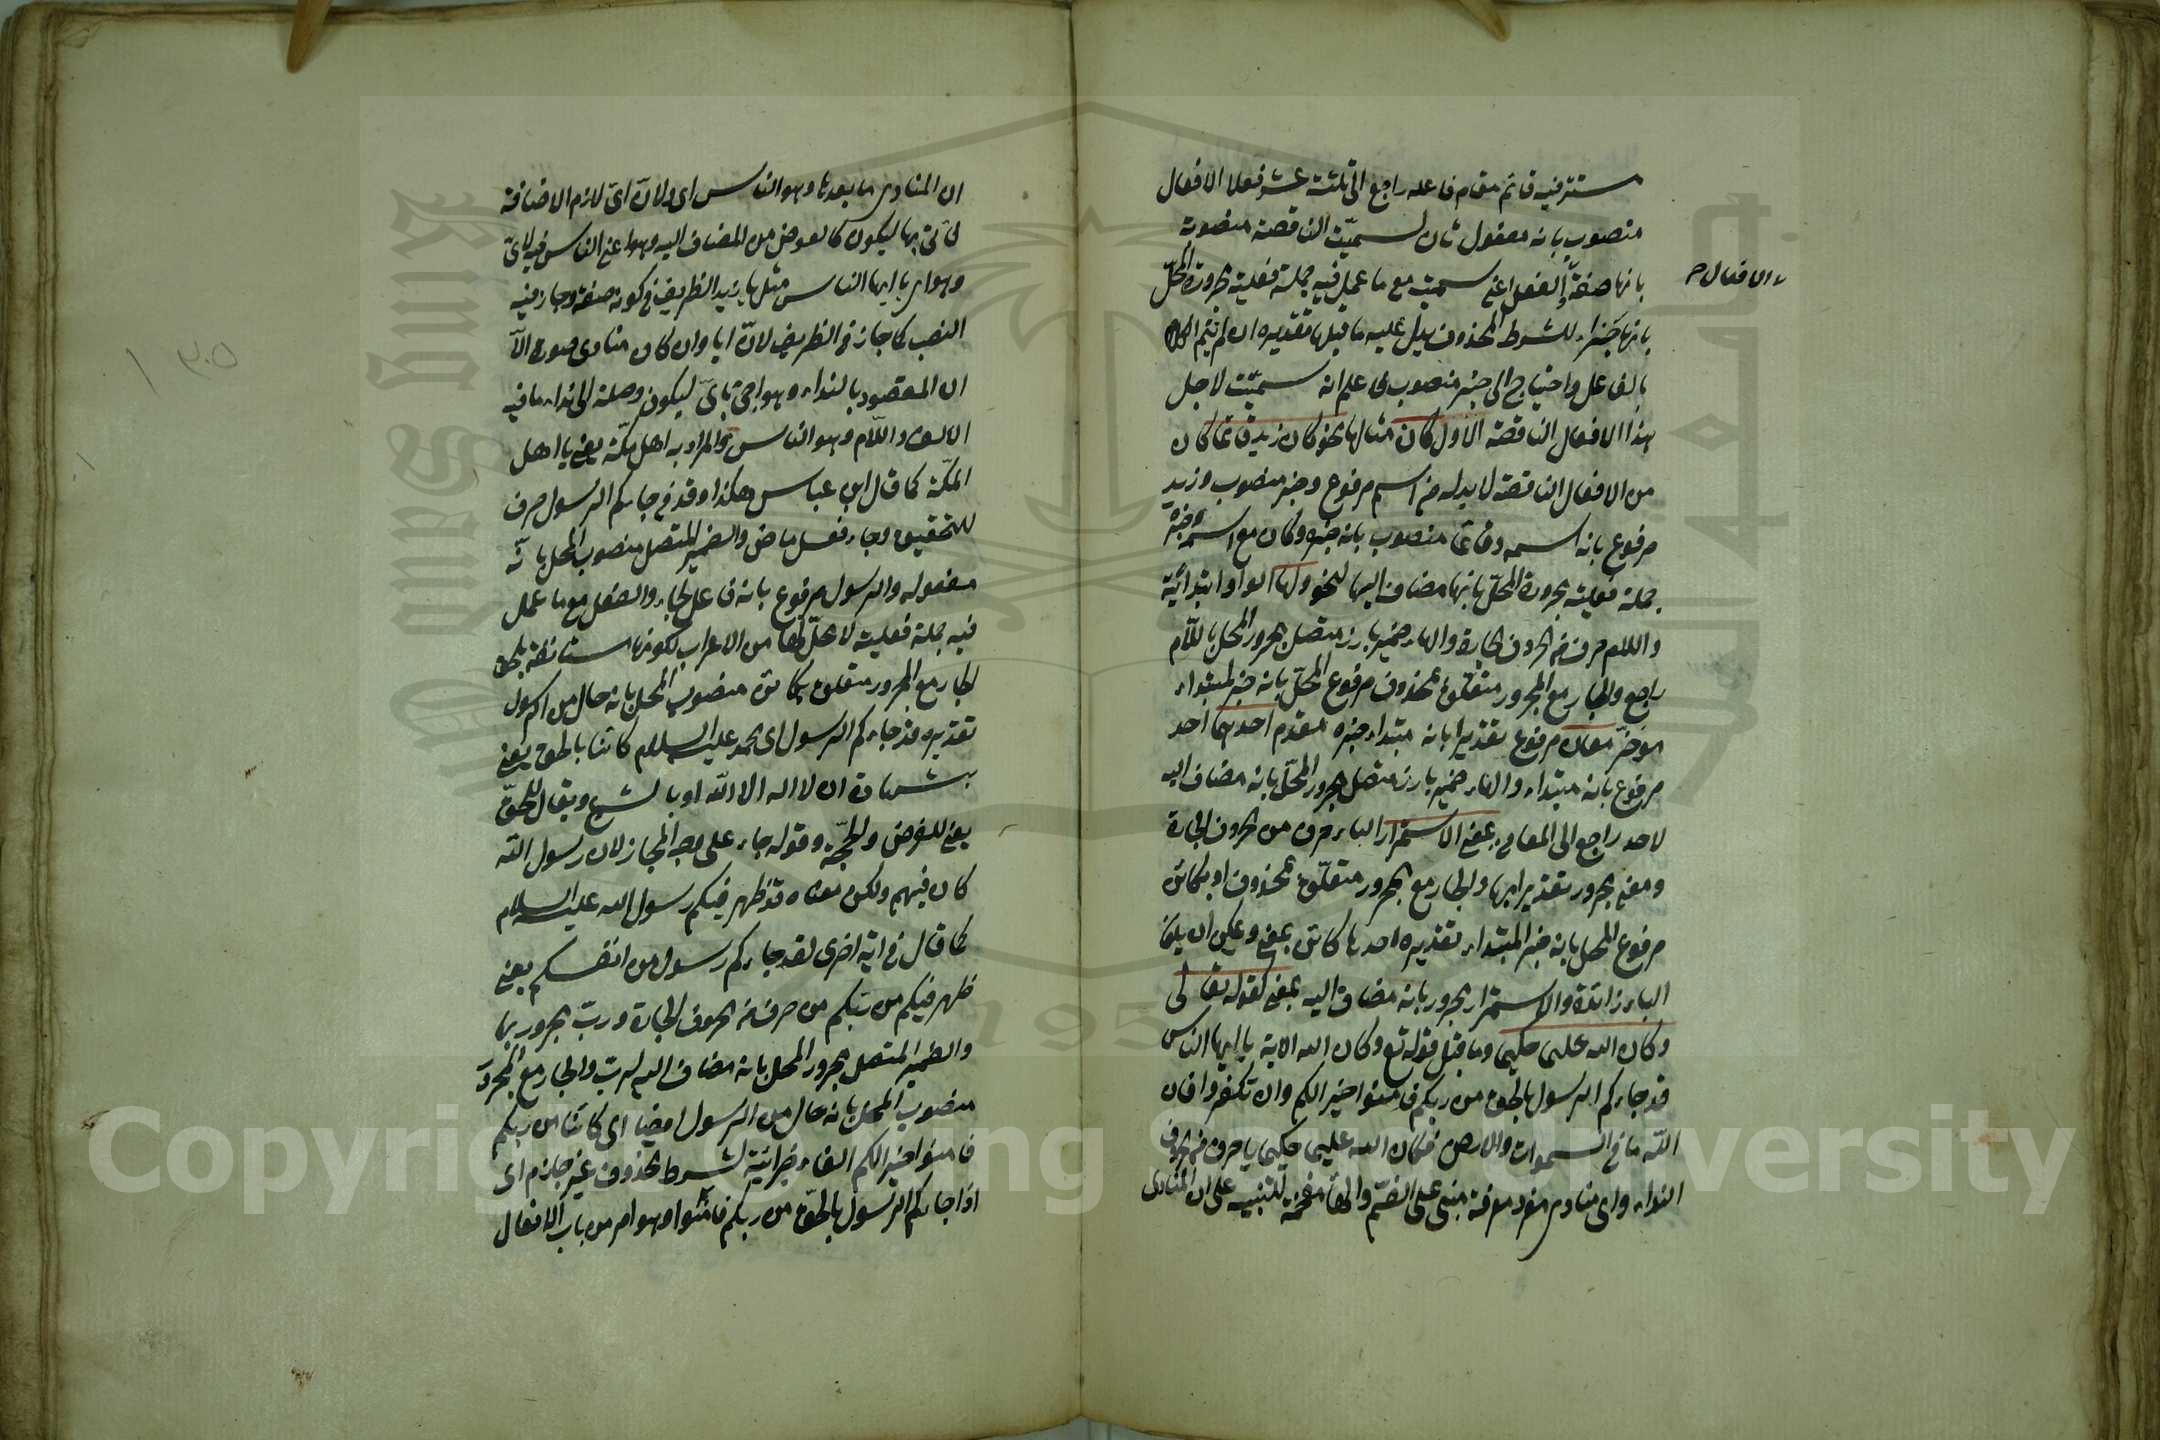 مستتر فيه قائم مقام فاعله راجع الى ثلثة عشر فعلا الافعال
منصوب بانه مفعول ثان لسميّت الناقصة منصوبة
بانها صفة الفعل اعني سميت مع ما عمل فيه جملة فعلية مجرورة المحلّ
الافعال
بانها جزاء للشرط المحذوف يدل عليه ما قبلها تقديره ان لم يتم الكلام
بالفاعل واحتياج الى خبر منصوب فاعلم انه سميّت لاجل
هذا الافعال الناقصة الاول كان مثالها نحو كان زيد قائما كان
من الافعال الناقصة لا بد له من اسم مرفوع وخبر منصوب وزيد
مرفوع بانه اسمه وقائما منصوب بانه خبره وكان مع اسمه وخبره
جملة فعلية مجرورة المحلّ بانها مضاف اليها لنحو ولها الواو ابتدائية
واللام حرف من الحروف الجارة والهاء ضمير بارز متصل مجرور المحل باللام
راجع والجار مع المجرور متعلق بمحذوف مرفوع المحلّ بانه خبر لمبتداء
مؤخر معان مرفوع تقديرا بانه مبتداء خبره مقدم احدهما احد
مرفوع بانه مبتداء والهاء ضمير بارز متصل مجرور المحلّ بانه مضاف اليه
لاحد راجع الى المعاني بمعنى الاستمرار الباء حرف من الحروف الجارة
ومعنى مجرور تقديرا بها والجار مع المجرور متعلّق بمحذوف او بكائن
مرفوع المحل بانه خبر المبتداء تقديره احدها كائن بمعنى ويمكن ان يكون
الباء زائدة والاستمرار مجرور بانه مضاف اليه بمعنى كقوله تعالى
وكان الله عليما حكيما وما قبل قوله تع وكان الله الاية يا ايها الناس
قد جاءكم الرسول بالحق من ربكم فامنوا خيرا لكم وان تكفروا فان
الله ما في السموات والارض فكان الله عليما حكيما يا حرف من حروف
النداء واى منادى مفرد معرفة مبنى على الضمّ والهاء مقحمة للتنبيه على ان المنادى
ان المنادى ما بعدها وهو الناس اى ولان اىّ لازم الاضافة
بها ليكون كالعوض من المضاف اليه وهو اعنى الناس
وهو اى يا ايها الناس مثل يا زيد الظريف في كونه صفة وجاز فيه
النصب كما جاز في الظريف لانّ ايا وان كان منادى صورة الاّ
ان المقصود بالنداء هو باىّ ليكون وصلة الى نداء ما فيه
الالف واللام وهو الناس والمراد به اهل مكّة يعنى يا اهل
المكّة كما قال ابن عباس هكذا وقد في جاءكم الرسول حرف
للتحقيق وجاء فعل ماض والضمير المتصل منصوب المحل بانّه
مفعوله والرسول مرفوع بانه فاعل لجاء والفعل مع ما عمل
فيه جملة فعلية لا محلّ لها من الاعراب لكونها مستانفة بالحق
الجار مع المجرور متعلق بكائن منصوب المحل بانه حال من الرسول
تقديره قد جاءكم الرسول اى محمد عليه السلام كائنا بالحق يعنى
بشهادة ان لا اله الا الله او بالشرع ويقال للحقّ
يعنى للفرض والحجّة وقوله جاء على وجه المجاز لان رسول الله
كان فيهم ولكن معناه قد ظهر فيكم رسول الله عليه السلام
كما قال في اية اخرى لقد جاءكم رسول من انفسكم يعنى
ظهر فيكم من ربكم من حرف من الحروف الجارة وربّ مجرور بها
والضمير المتصل مجرور المحل بانه مضاف اليه لربّ والجار مع المجرور
منصوب المحل بانه حال من الرسول ايضا اى كائنا من ربكم
فامنوا خيرا لكم الفاء جزائية لشرط محذوف غير جازم اى
اذا جاءكم الرسول بالحق من ربكم فامنوا وهو امر من باب الافعال
٣٠٥
Copyright © King Saud University
King Saud University
1957